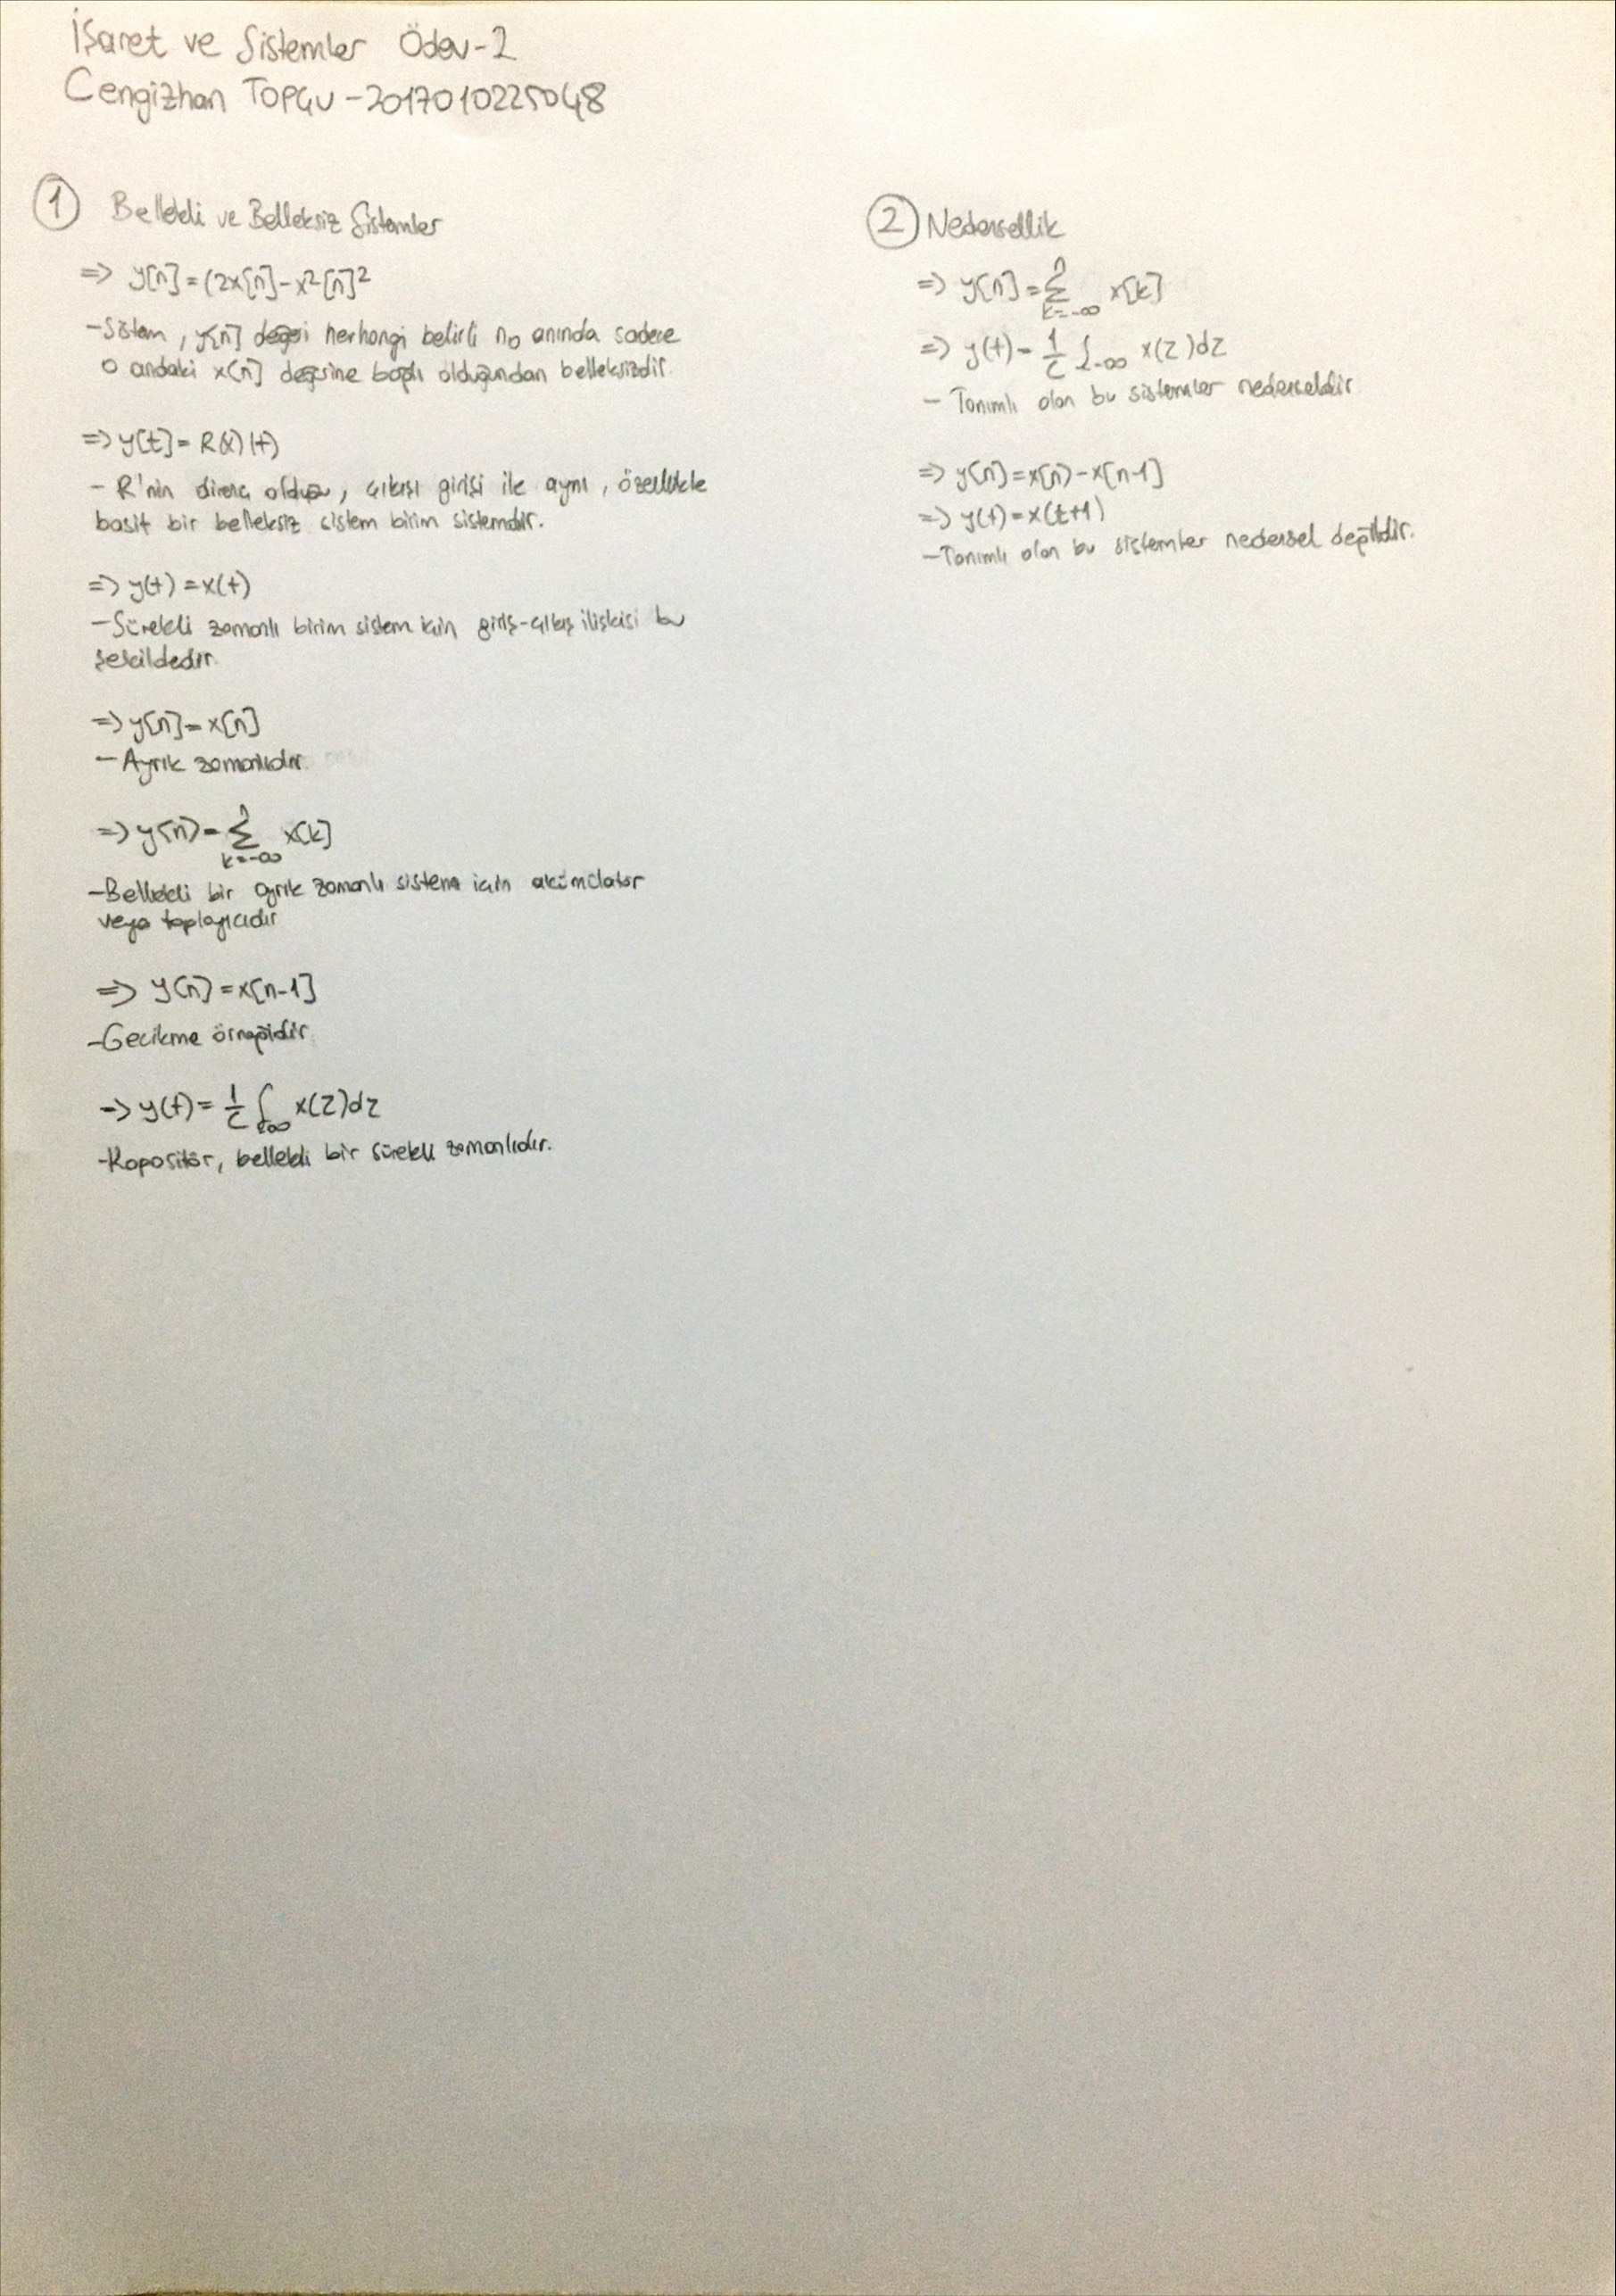 İşaret ve Sistemler Ödev-2
Cengizhan TOPÇU - 2017010225048
1 Bellekli ve Belleksiz Sistemler
=> y[n] = (2x[n] - x²[n]²
- Sistem, y[n] değeri herhangi belirli n₀ anında sadece
o andaki x[n] değerine bağlı olduğundan belleksizdir.
=> y[t] = R(x)(t)
- R'nin direnç olduğu, çıkışı girişi ile aynı, özellikle
basit bir belleksiz sistem birim sistemdir.
=> y(t) = x(t)
- Sürekli zamanlı birim sistem için giriş-çıkış ilişkisi bu
şekildedir.
=> y[n] = x[n]
- Ayrık zamanlıdır.
=> y[n] = n Σ k=-∞ x[k]
- Bellekli bir ayrık zamanlı sistem için akümülatör
veya toplayıcıdır
=> y[n] = x[n-1]
- Gecikme örneğidir.
=> y(t) = 1/C ∫-∞ x(z)dz
- Kapasitör, bellekli bir sürekli zamanlıdır.
2 Nedensellik
=> y[n] = n Σ k=-∞ x[k]
=> y(t) = 1/C ∫-∞ x(z)dz
- Tanımlı olan bu sistemler nedenseldir.
=> y[n] = x[n] - x[n-1]
=> y(t) = x(t+1)
- Tanımlı olan bu sistemler nedensel değildir.